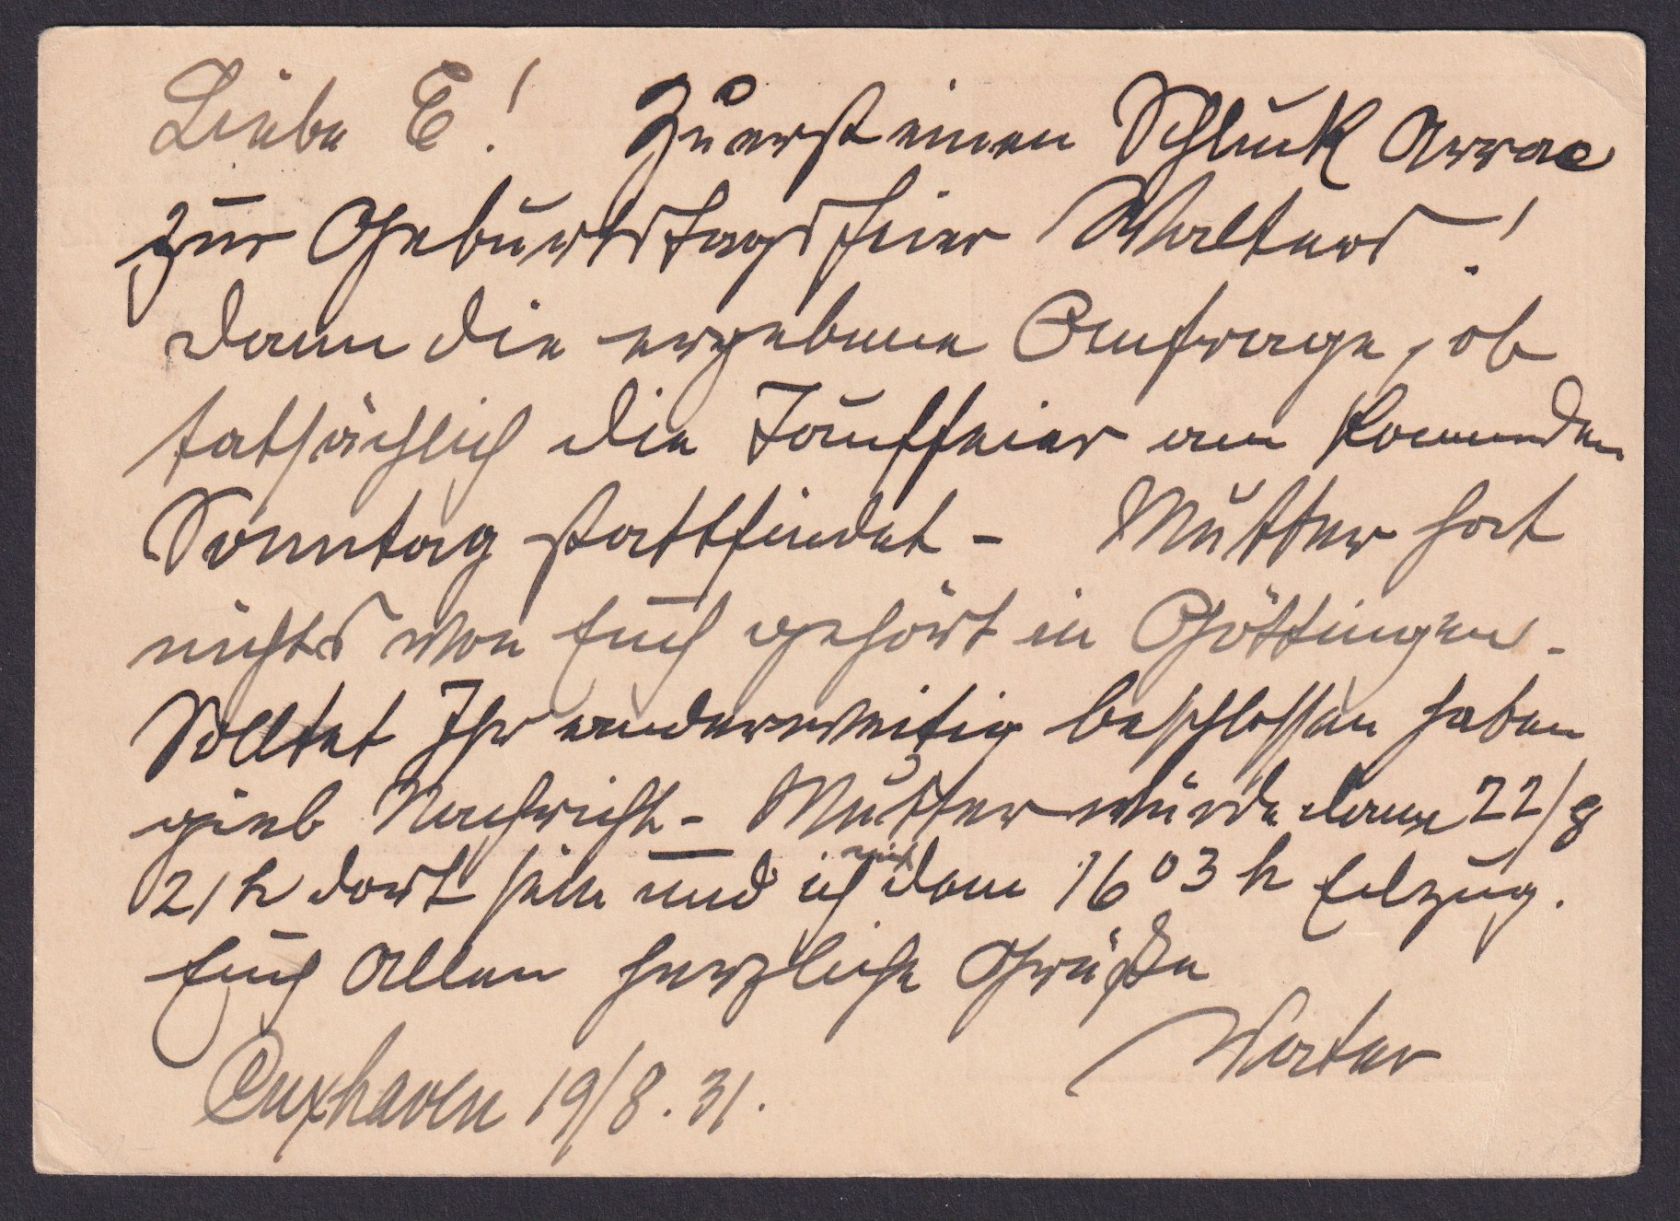 Liebe E! Zuerst einen Schluck Arrac
zur Geburtstagsfeier Walters!
Dann die ergebene Anfrage, ob
tatsächlich die Tauffeier am kommenden
Sonntag stattfindet - Mutter hat
nichts von Euch gehört in Göttingen.
Solltet Ihr anderweitig beschlossen haben
gieb Nachricht - Mutter würde dann 22/8
21 h dort sein und ich mit dem 16⁰³ h Eilzug.
Euch Allen herzliche Grüße
Vater
Cuxhaven 19/8. 31.